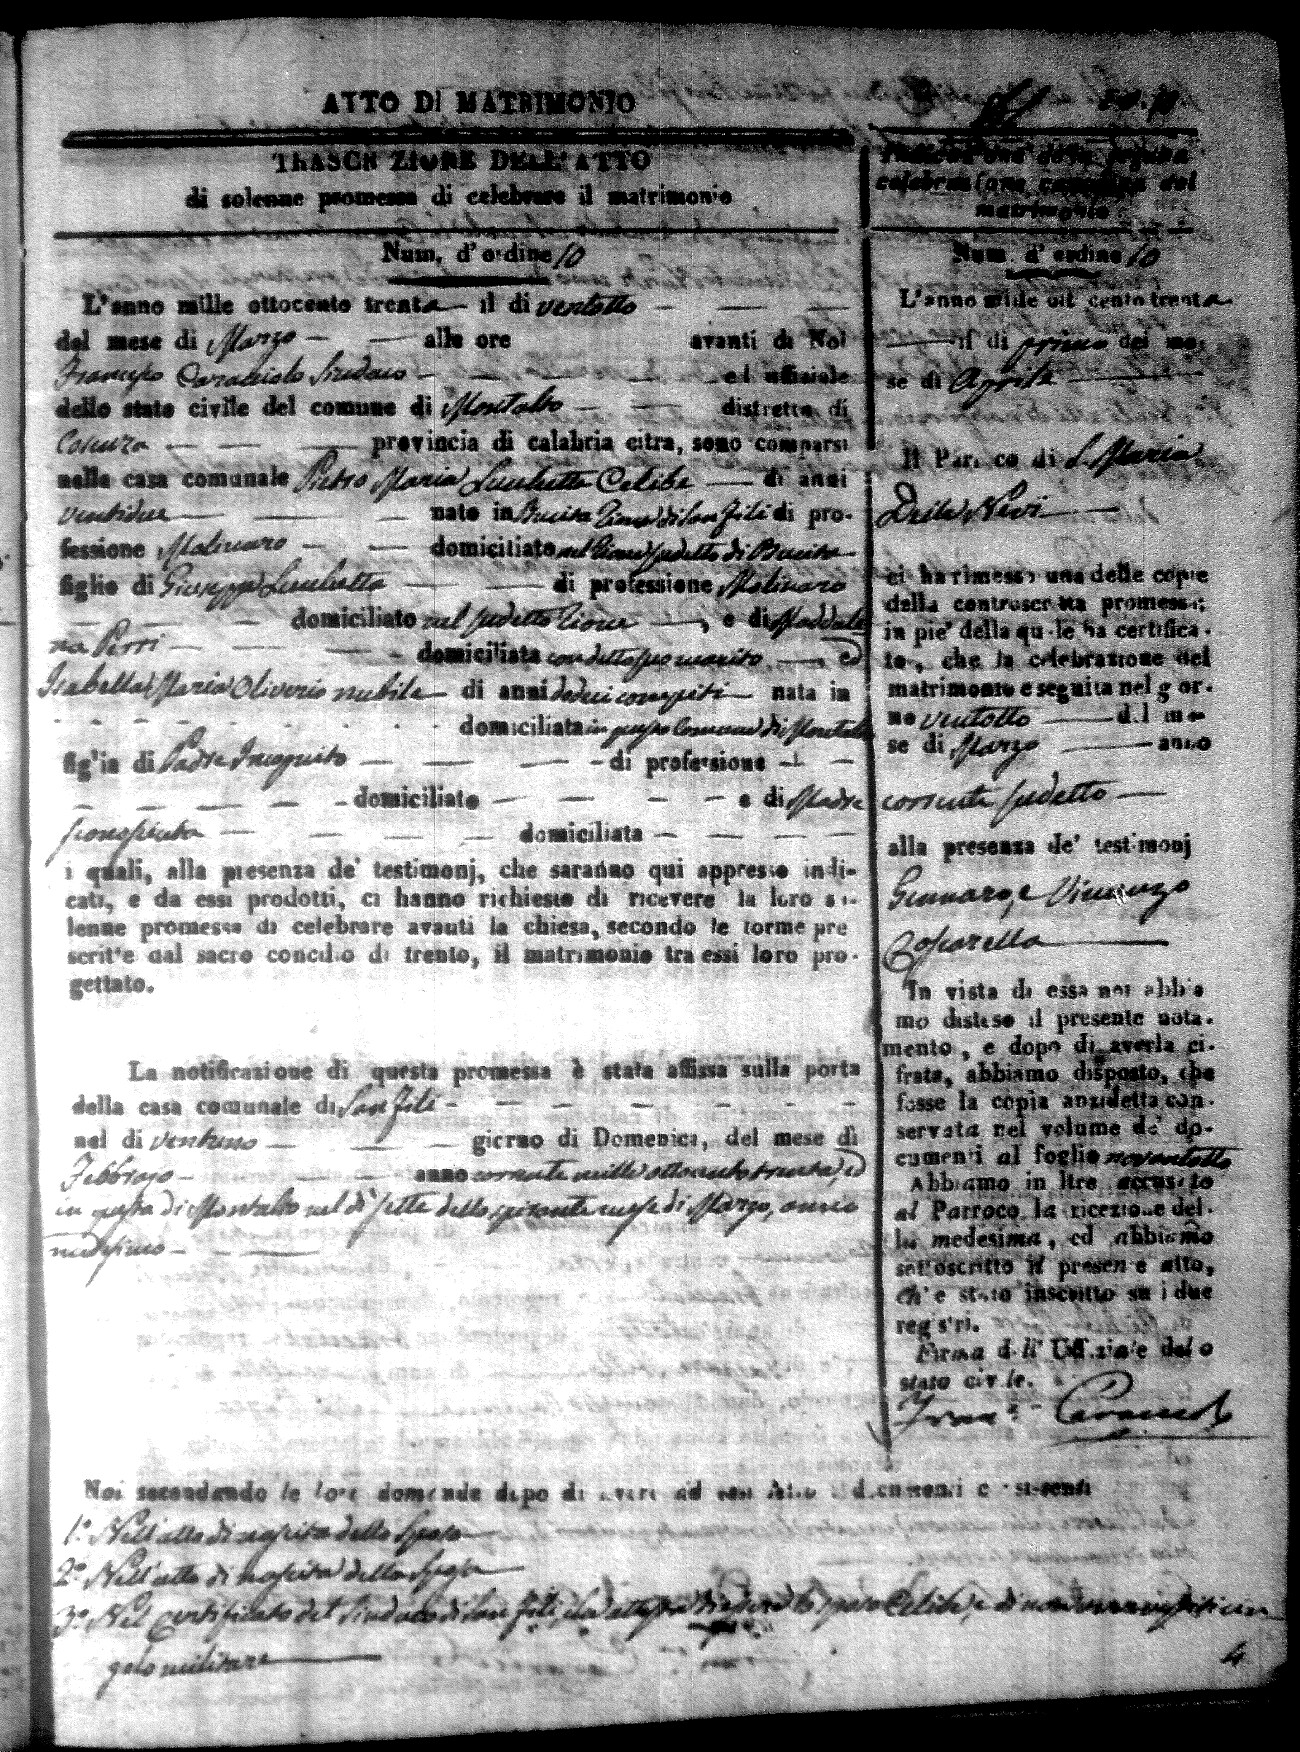 ATTO DI MATRIMONIO
TRASCRIZIONE DELL'ATTO
di solenne promessa di celebrare il matrimonio
Num. d'ordine 10
L'anno mille ottocento trenta il di ventotto
del mese di Marzo alle ore avanti di Noi
Caracciolo Sindaco ed uffiziale
dello stato civile del comune di Montalto distretto di
Cosenza provincia di calabria citra, sono comparsi
nella casa comunale Pietro Maria Celibe di anni
ventidue nato in Bucita di San Fili di pro-
fessione Molinaro domiciliato nel di Bucita
figlio di Giuseppe di professione Molinaro
domiciliato nel sudetto , e di Maddale
na Perri domiciliata con detto suo marito ed
Isabella Maria Oliverio nubile di anni dodici compiti nata in
domiciliata in questo Comune di Montalto
figlia di Padre Incognito di professione
domiciliato e di Madre
domiciliata
i quali, alla presenza de' testimonj, che saranno qui appresso indi-
cati, e da essi prodotti, ci hanno richiesto di ricevere la loro so-
lenne promessa di celebrare avanti la chiesa, secondo le forme pre
scritte dal sacro concilio di trento, il matrimonio tra essi loro pro-
gettato.
La notificazione di questa promessa è stata affissa sulla porta
della casa comunale di San Fili
nel di ventuno giorno di Domenica, del mese di
Febbrajo anno corrente mille ottocento trenta, ed
in questa di Montalto nel dì sette dello spirante mese di Marzo, anno
medesimo
Noi secondando le loro domande dopo di avere ad essi letto i documenti consistenti
1.° Nell'atto di nascita dello Sposo
2.° Nell'atto di nascita della Sposa
3.° Nel Certificato del Sindaco di San Fili Celibe, e di non
golo militare
Indicazione della seguita
celebrazione canonica del
matrimonio
Num d'ordine 10
L'anno mille ott cento trenta
il di primo del me-
se di Aprile
Il Parroco di S. Maria
Della Nevi
ci ha rimesso una delle copie
della controscritta promessa;
in pie' della quale ha certifica-
to, che la celebrazione del
matrimonio e seguita nel gior-
no ventotto del me-
se di Marzo anno
corrente sudetto
alla presenza de' testimonj
Gennaro, e Vincenzo
In vista di essa noi abbia
mo disteso il presente nota-
mento, e dopo di averla ci-
frata, abbiamo disposto, che
fosse la copia anzidetta con-
servata nel volume de' do-
cumenti al foglio novantotto
Abbiamo in ltre accusato
al Parroco la ricezione del-
la medesima, ed abbiamo
sottoscritto il presente atto,
ch'e stato inscritto su i due
registri.
Firma dell' Uffiziale dello
stato civile.
Fran.° Caracciolo
4